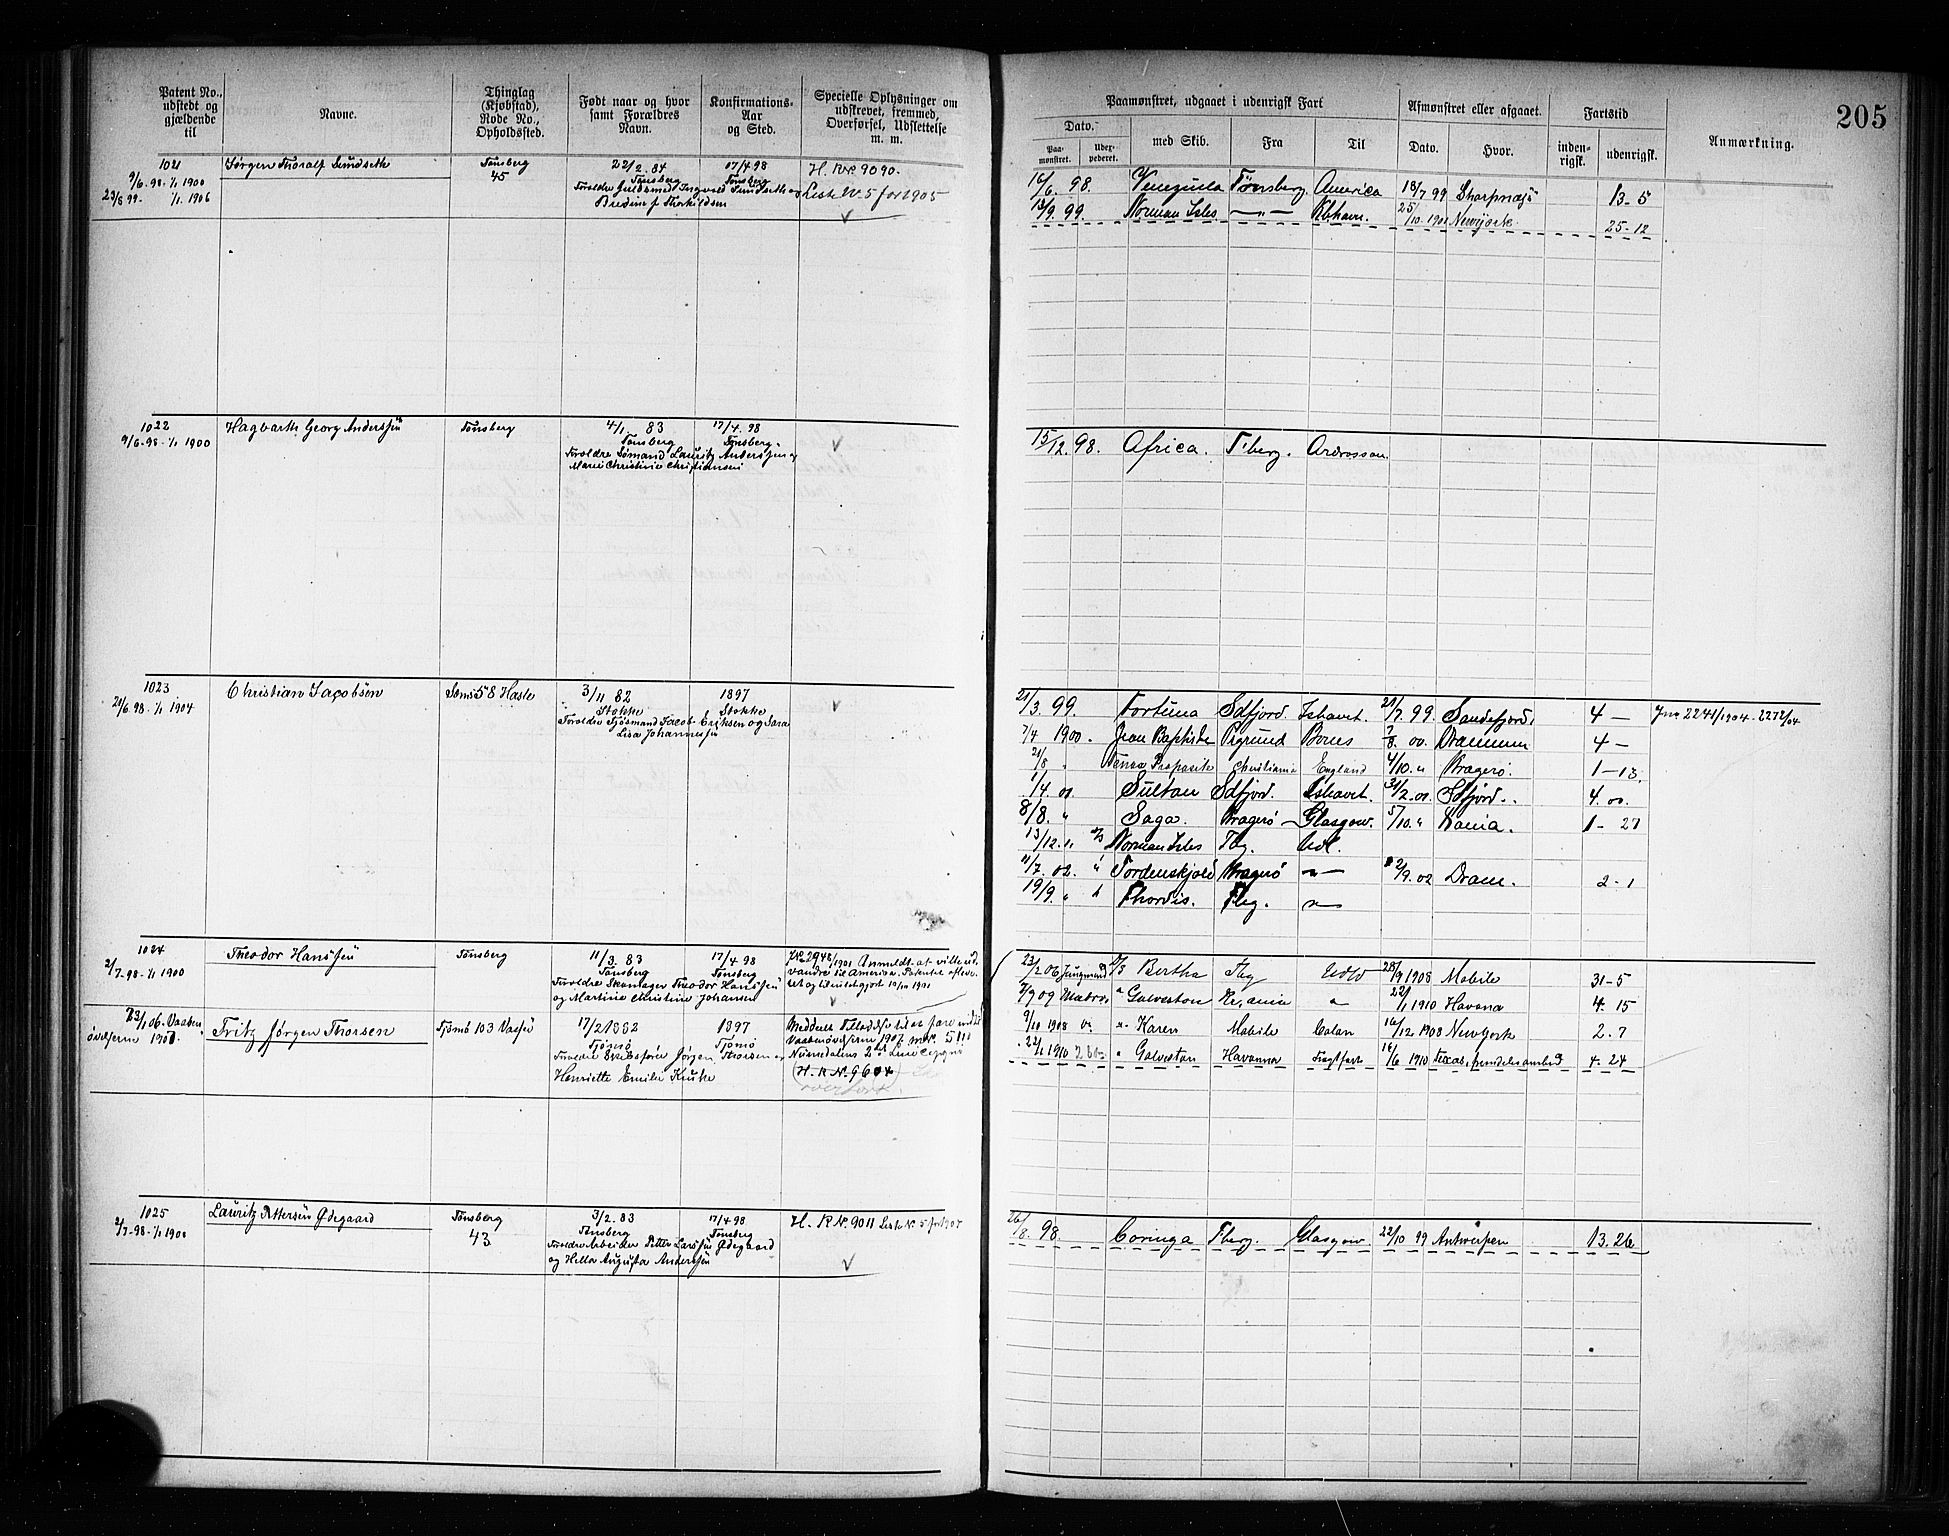 205
Patent No., udstedt og gjældende til
Navne.
Thinglag (Kjøbstad), Rode No., Opholdssted.
Født naar og hvor samt Forældres Navn.
Konfirmations-Aar og Sted.
Specielle Oplysninger om udskrevet, fremmed, Overførsel, Udslettelse m. m.
Paamønstret, udgaaet i udenrigsk Fart
Afmønstret eller afgaaet.
Fartstid
Anmærkning.
Dato.
med Skib.
Fra
Til
Dato.
Hvor.
inden-rigsk.
udenrigsk.
Paa-mønstret.
Udex-pederet.
1021
9/6-98-1/1 1900
23/8 99- 1/1. 1906
Jørgen Thoralf Sundseth
Tønsberg
45
22/2. 84
Tønsberg
Forældre Guldsmed Ingvald Sundseth og
Bredine f Thorkildsen
17/4 98
Tønsberg
H. R.N. 9090.
Liste No. 5 for 1905
16/6. 98. Venezuela Tønsberg. America 18/7 99 Sharpness 13-5
13/9. 99. Norman Isles —"— Kbhavn. 25/10. 1901 Newyork 25-12
1022
9/6-98-1/1 1900
Hagbarth Georg Anderssen
Tønsberg
4/1. 83
Tønsberg
Forældre Sømand Lauritz Anderssen og
Marie Christine Christiansen
17/4. 98
Tønsberg.
15/12. 98. Africa. T'berg. Ardrossan
1023
21/6 98-1/1 1904
Christian Jacobsen
Sems 58 Hasle
3/11 82
Stokke
Forældre Sjømand Jacob Eriksen og Sara
Lisa Johannessen
1897
Stokke
21/3. 99. Fortuna Sdfjord. Ishavet. 21/7. 99. Sandefjord. 4 — Jno 2241/1904. 2272/04
7/4 1900. Jean Baptiste Prgrund 00. Drammen 4 —
21/8 " Christiania England 4/10. " Kragerø. 1-13.
1/4. 01 Sultan Sdfjord. Ishavet. 31/2. 01. Sdfjord. 4. 00.
8/8. " Saga. Kragerø — Glasgow. 5/10. " 1- 27
13/12. " Norman Isles Tbg. Udl.
11/7. 02. " Tordenskjold Kragerø —"— 2/9. 02 Dram. 2-1
19/9. " Thordis. Tbg. —"—
1024
2/7-98-1/1 1900
Theodor Hanssen
Tønsberg
11/3. 83
Tønsberg
Forældre Skomager Theodor Hanssen
og Martine Christine Johansen
17/4 98
Tønsberg
JNo 2948/1901 Anmeldt at ville ud
vandre til America. Patentet afleve-
ret og 10/10 1901
23/2 06 Jungmand Bertha Tbg Udl 28/9 1908 Mobile 31-5
7/9 09 Matros " Galveston " 22/1 1910 Havana 4. 15
23/1 06. Vaaben
øvelserne 1900.
Fritz Jørgen Thorsen
Tjømø 103
17/2 1882
Tjømø
Forældre Jørgen Thorsen og
Henriette Emilie Kruke
1897
Tjømø
Vaabenøvelserne 1907
Numedalens
(H. R. N. 9604)
overført.
9/10 1908 " Karen Mobile Colon 16/12 1908 NewYork 2. 7
22/1 1910 " Galveston Havanna Fragtfart 16/6 1910 Texas, 4. 24
1025
2/7-98-1/1 1900
Lauritz Pettersen Ødegaard
Tønsberg
43
3/2. 83
Tønsberg
Forældre Arbeider Petter Larssen Ødegaard
og Hella Augusta Anderssen
17/4 98
Tønsberg
H. R.N. 9011 Liste No. 5 for
26/8. 98. Coringa Tberg. Glasgow 22/10 99 Antwerpen 13. 26